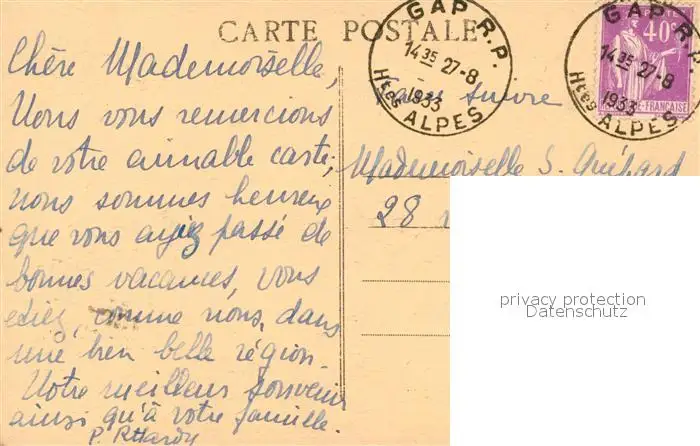 CARTE POSTALE
GAP R.P.
14 35 27-8
1933
Htes ALPES
POSTES
40c
GAP R.P.
14 35 27-8
1933
Htes ALPES
FRANÇAISE
Chère Mademoiselle,
Nous vous remercions
de votre aimable carte,
nous sommes heureux
que vous ayiez passé de
bonnes vacances, vous
étiez, comme nous, dans
une bien belle région.
Notre meilleur souvenir
ainsi qu'à votre famille.
P. RHardy
Faire suivre
Mademoiselle S.
28
privacy protection
Datenschutz